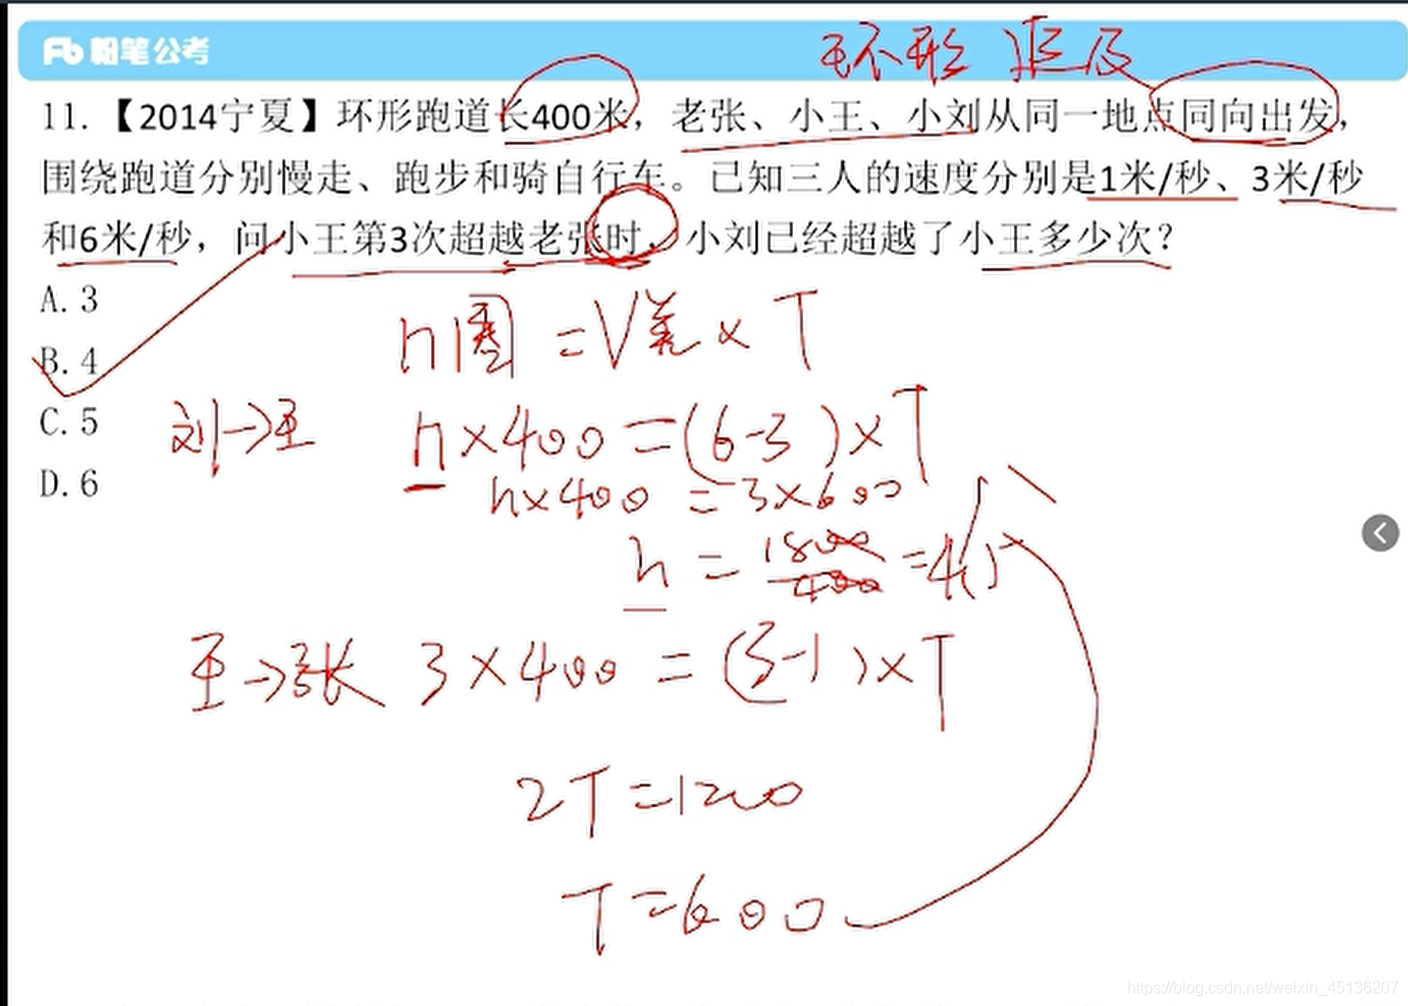 粉笔公考
环形 追及
11.【2014宁夏】环形跑道长400米，老张、小王、小刘从同一地点同向出发，
围绕跑道分别慢走、跑步和骑自行车。已知三人的速度分别是1米/秒、3米/秒
和6米/秒，问小王第3次超越老张时，小刘已经超越了小王多少次？
A.3
B.4
C.5
D.6
n圈 = V差 × T
刘→王 n×400=(6-3)×T
n×400 = 3×600
n = 1800/400 = 4.5
王→张 3×400 = (3-1)×T
2T=1200
T=600
https://blog.csdn.net/weixin_45136207